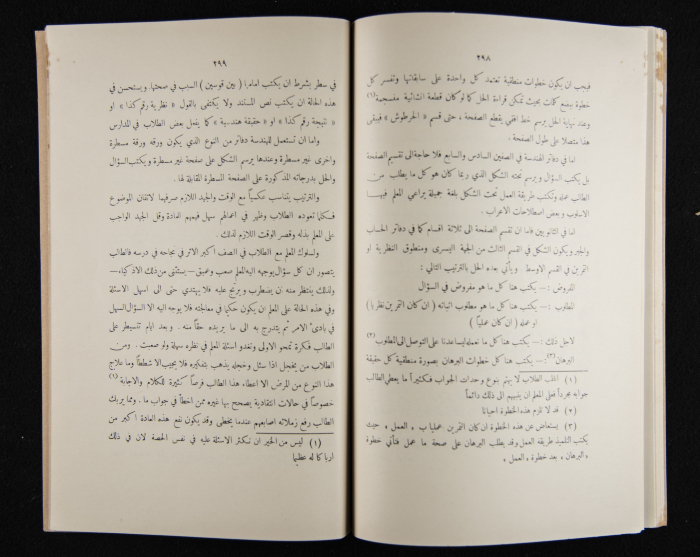 ٢٩٨
فيجب ان يكون خطوات منطقية تعتمد كل واحدة على سابقاتها وتفسر كل
خطوة ببضع كلمات بحيث تمكن قراءة الحل كما لو كان قطعة انشائية منسجمة (١)
وعند نهاية الحل يرسم خط افقي يقطع الصفحة ، حتى قسم « الخرطوش » فيبقى
هذا متصلا على طول الصفحة .
اما في دفاتر الهندسة في الصفين السادس والسابع فلا حاجة الى تقسيم الصفحة
بل يكتب السؤال و يرسم تحته الشكل الذي ربما كان هو كل ما يطلب من
الطالب عمله وتكتب طريقة العمل تحت الشكل بلغة جميلة يراعي المعلم فيها
الاسلوب و بعض اصطلاحات الاعراب .
اما في الثانويين فلما ان تقسم الصفحة الى ثلاثة اقسام كما في دفاتر الحساب
والجبر ويكون الشكل في القسم الثالث من الجهة اليسرى ومنطوق النظرية او
التمرين في القسم الاوسط . ويأتي بعده الحل بالترتيب التالي :
المفروض : — يكتب هنا كل ما هو مفروض في السؤال
المطلوب : — يكتب هنا كل ما هو مطلوب اثباته ( ان كان التمرين نظريا )
او عمله ( ان كان عملياً )
لاجل ذلك : — يكتب هنا كل ما نعمله ليساعدنا على التوصل الى المطلوب (٢)
البرهان (٣) : — يكتب هنا كل خطوات البرهان بصورة منطقية كل حقيقة
(١) اغلب الطلاب لا يهتم بنوع وحدات الجواب فكثيراً ما يعطي الطالب
جوابه مجرداً فعلى المعلم ان ينبههم الى ذلك دائماً
(٢) قد لا تلزم هذه الخطوة احيانا
(٣) يستعاض عن هذه الخطوة ان كان التمرين عمليا ب « العمل » حيث
يكتب التلميذ طريقة العمل وقد يطلب البرهان على صحة ما عمل فتأتي خطوة
« البرهان » بعد خطوة « العمل »
٢٩٩
في سطر بشرط ان يكتب امامها ( بين قوسين ) السبب في صحتها ويستحسن في
هذه الحالة ان يكتب نص المستند ولا يكتفى بالقول « نظرية رقم كذا » او
« نتيجة رقم كذا » او « حقيقة هندسية » كما يفعل بعض الطلاب في المدارس
واما ان تستعمل للهندسة دفاتر من النوع الذي يكون ورقه ورقة مسطرة
واخرى غير مسطرة وعندها يرسم الشكل على صفحة غير مسطرة و يكتب السؤال
والحل بدرجاته المذكورة على الصفحة المسطرة المقابلة لها .
والترتيب يتناسب عكسياً مع الوقت والجيد اللازم صرفهما لاتقان الموضوع
فكلما تعوده الطلاب وظهر في اعمالهم سهل فهمهم المادة وقل الجيد الواجب
على المعلم بذله وقصر الوقت اللازم لذلك .
ولسلوك المعلم مع الطلاب في الصف اكبر الاثر في نجاحه في درسه فالطالب
يتصور ان كل سؤال يوجهه اليه المعلم صعب وعميق — يستثنى من ذلك الاذكياء —
ولذلك ينتظر منه ان يضطرب و يرتج عليه فلا يهتدي حتى الى اسهل الاسئلة
وفي هذه الحالة على المعلم ان يكون حكيما في معاملته فلا يوجه اليه الا السؤال السهل
في بادىء الامر ثم يتدرج به الى ما يريده حقاً منه . وبعد ايام تسيطر على
الطالب فكرة تمحو الاولى وتغدو اسئلة المعلم في نظره سهلة ولو صعبت . ومن
الطلاب من يخجل اذا سئل وخجله يذهب بتفكيره فلا يجيب الا شططاً وما علاج
هذا النوع من المرض الا اعطاء هذا الطالب فرصاً كثيرة للكلام والاجابة (١)
خصوصاً في حالات انتقادية يصحح بها غيره ممن اخطأ في جواب ما . ومما يربك
الطالب رفع زملائه اصابعهم عندما يخطئ وقد يكون نفع هذه العادة اكبر من
(١) ليس من الخير ان تكثر الاسئلة عليه في نفس الحصة لان في ذلك
ارباكا له عظيما